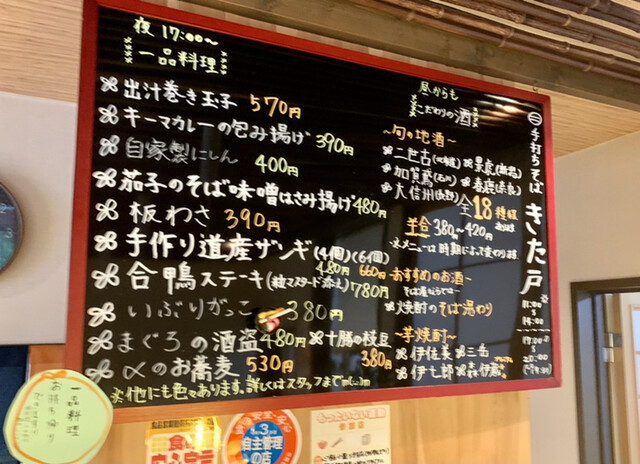 夜 17:00〜
一品料理
出汁巻き玉子 570円
キーマカレーの包み揚げ 390円
自家製にしん 400円
茄子のそば味噌はさみ揚げ 480円
板わさ 390円
手作り道産ザンギ(4個)(6個)
480円 660円
合鴨ステーキ(粒マスタード添え) 780円
いぶりがっこ 380円
まぐろの酒盗 480円
十勝の枝豆 380円
〆のお蕎麦 530円
※他にも色々あります。詳しくはスタッフまでm(_ _)m
昼からも
こだわりの酒
〜旬の地酒〜
二世古(北海道)
加賀鳶(石川)
春鹿(奈良)
大信州(長野)
全18種類
半合 380〜420円
※メニューは時期によって変わります
〜おすすめのお酒〜
そば屋ならでは
焼酎のそば湯わり
〜芋焼酎〜
伊佐美
三岳
伊七郎
手打ちそば きた戸
11:00
14:00
17:00
20:00
一品料理
お持ち帰り
自主管理
の店